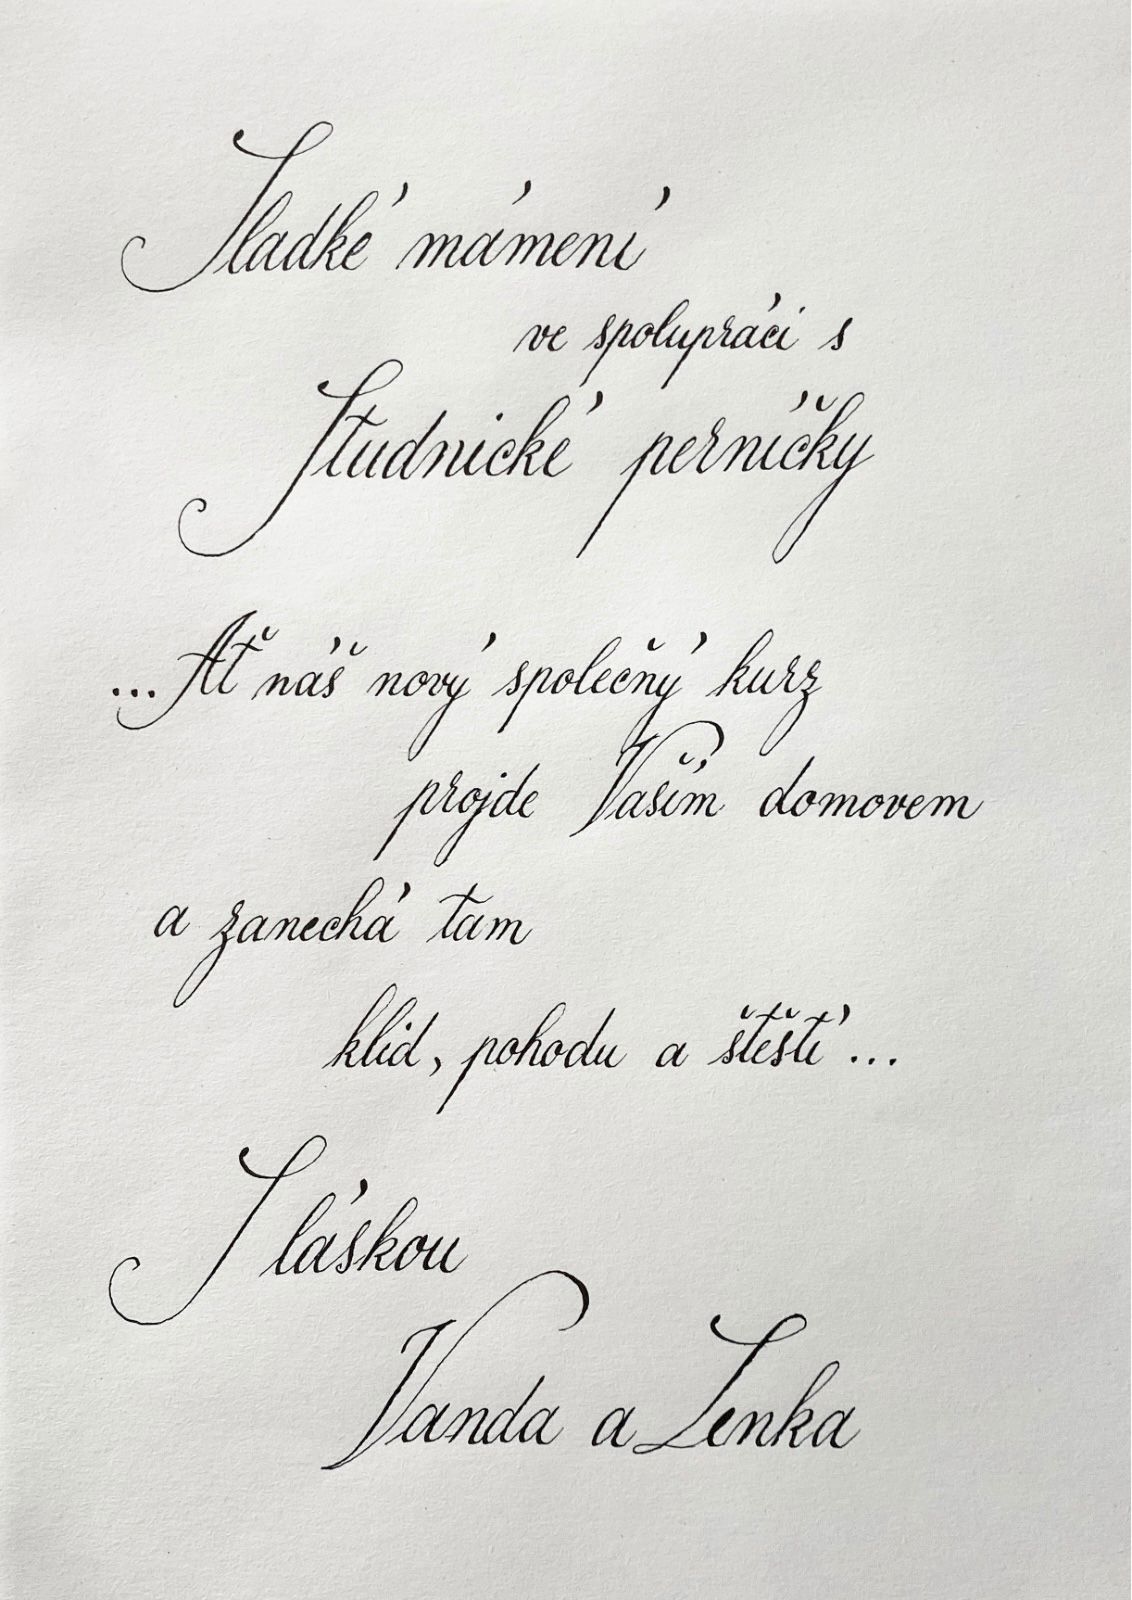 Sladké mámení
ve spolupráci s
Studnické perníčky
...Ať náš nový společný kurz
projde Vaším domovem
a zanechá tam
klid, pohodu a štěstí...
S láskou
Vanda a Lenka